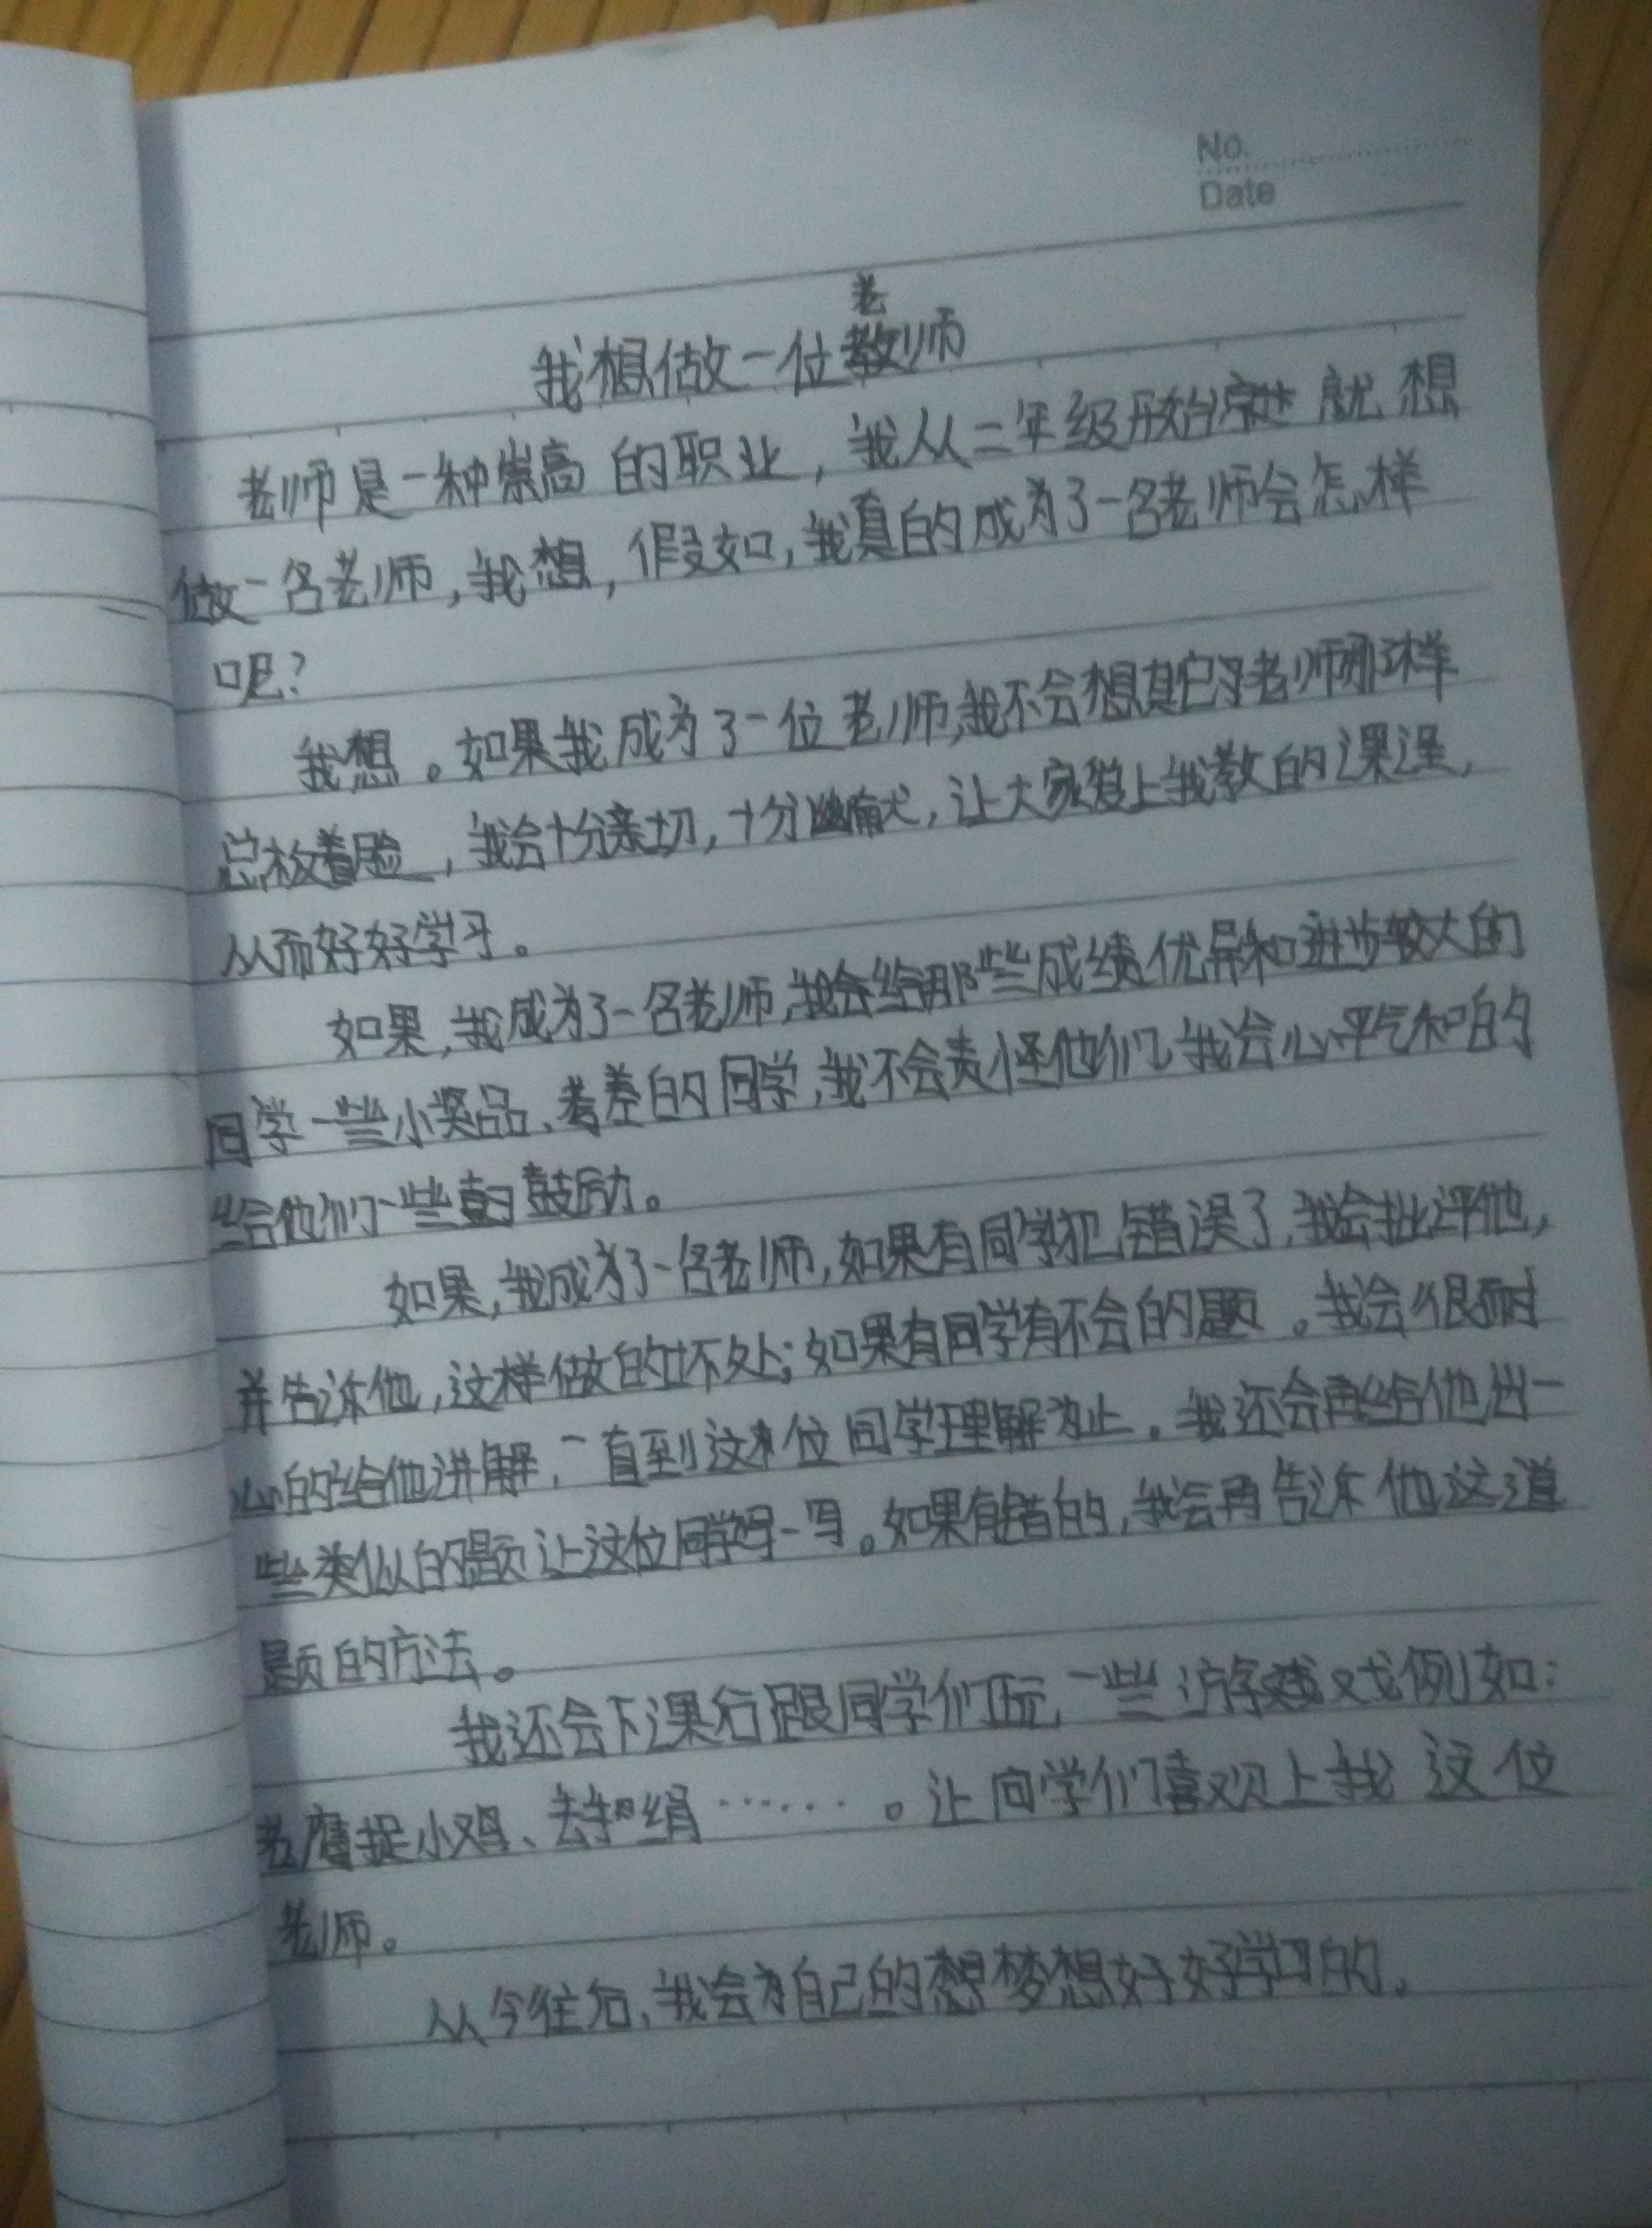 No.
Date
老
我想做一位教师
老师是一种崇高的职业，我从二年级开始就想
做一名老师，我想，假如，我真的成为了一名老师会怎样
呢？
我想。如果我成为了一位老师，我不会想其它老师那样
总板着脸，我会十分亲切，十分幽默，让大家爱上我教的课程，
从而好好学习。
如果，我成为了一名老师，我会给那些成绩优异和进步较大的
同学一些小奖品、考差的同学，我不会责怪他们，我会心平气和的
给他们一些鼓励。
如果，我成为了一名老师，如果有同学犯错误了，我会批评他，
并告诉他，这样做的坏处；如果有同学有不会的题。我会很耐
心的给他讲解，一直到这位同学理解为止。我还会再给他出一
些类似的题让这位同学写一写。如果有错的，我会再告诉他这道
题的方法。
我还会下课后跟同学们玩一些游戏例如：
老鹰捉小鸡、丢手绢……。让同学们喜欢上我这位
老师。
从今往后，我会为自己的梦想好好学习的。